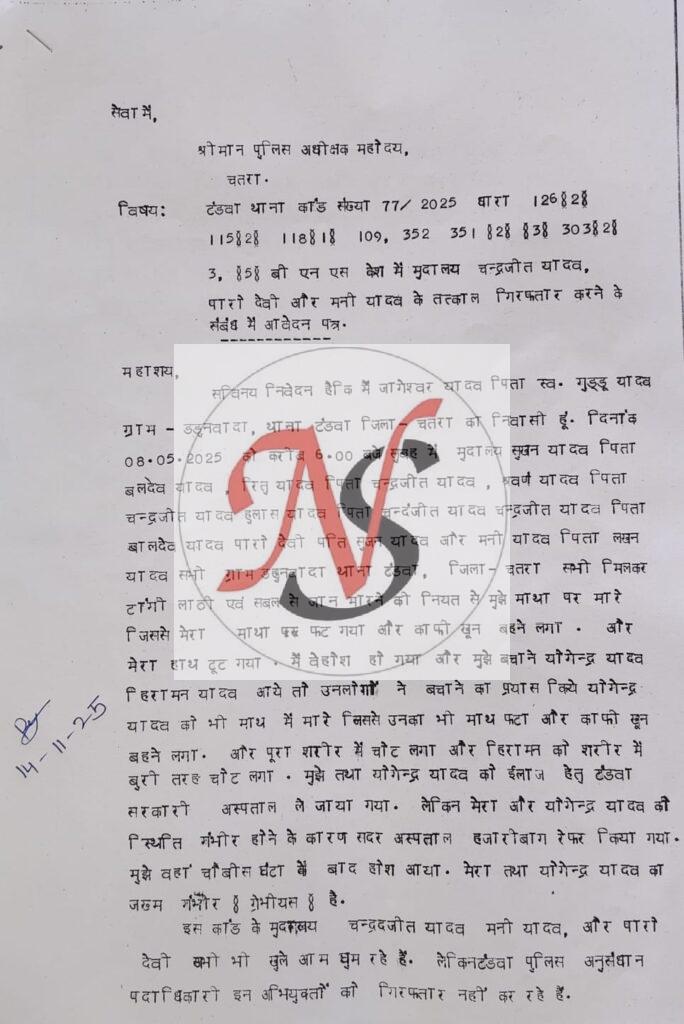 सेवा में,
श्रीमान पुलिस अधीक्षक महोदय,
चतरा.
विषय: टंडवा थाना कांड संख्या 77/ 2025 धारा 126§2§
115§2§ 118§1§ 109, 352 351 §2§ §3§ 303§2§
3, §5§ बी एन एस केश में मुदालय चन्द्रजीत यादव,
पारो देवी और मनी यादव के तत्काल गिरफतार करने के
संबंध में आवेदन पत्र.
महाशय,
सविनय निवेदन हैकि मैं जागेश्वर यादव पिता स्व. गुड्डू यादव
ग्राम - डडुनवादा, थाना टंडवा जिला- चतरा का निवासी हूं. दिनांक
08.05.2025 को करीब 6.00 बजे सुबह में मुदालय सुखन यादव पिता
बलदेव यादव, रितु यादव पिता चन्द्रजीत यादव, श्रवण यादव पिता
चन्द्रजीत यादव हुलास यादव पिता चन्दंजीत यादव चन्द्रजीत यादव पिता
बालदेव यादव पारो देवी पति सुखन यादव और मनी यादव पिता लखन
यादव सभी ग्राम डडुनवादा थाना टंडवा, जिला- चतरा सभी मिलकर
टांगी लाठी एवं सबल से जान मारने की नियत से मुझे माथा पर मारे
जिससे मेरा माथा पर फट गया और काफी खून बहने लगा . और
मेरा हाथ टूट गया . मैं वेहोश हो गया और मुझे बचाने योगेन्द्र यादव
हिरामन यादव आये तो उनलोगों ने बचाने का प्रयास किये योगेन्द्र
यादव को भी माथ में मारे जिससे उनका भी माथ फटा और काफी खून
बहने लगा. और पूरा शरीर में चोट लगा और हिरामन को शरीर में
बुरी तरह चोट लगा . मुझे तथा योगेन्द्र यादव को ईलाज हेतु टंडवा
सरकारी अस्पताल ले जाया गया. लेकिन मेरा और योगेन्द्र यादव की
स्थिति गंभीर होने के कारण सदर अस्पताल हजारीबाग रेफर किया गया.
मुझे वहां चौबीस घंटा के बाद होश आया. मेरा तथा योगेन्द्र यादव का
जख्म गंभीर § ग्रेभीयस § है.
इस कांड के मुदालय चन्द्रदजीत यादव मनी यादव, और पारो
देवी सभी भी खुले आम घुम रहे हैं. लेकिनटंडवा पुलिस अनुसंधान
पदाधिकारी इन अभियुक्तों को गिरफतार नहीं कर रहे हैं.
14-11-25
NS